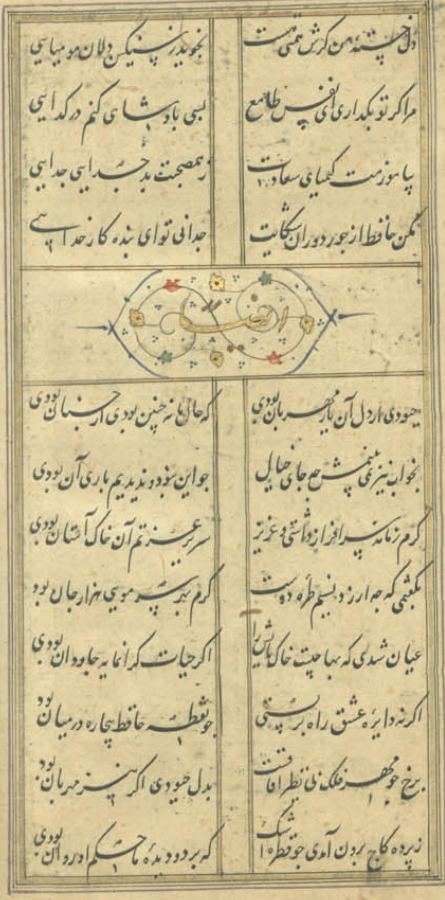 دل خسته من گرش همتی هست نخواهد ز سنگین دلان مومیایی
مرا گر تو بگذاری ای نفس طامع بسی پادشایی کنم در گدایی
بیاموزمت کیمیای سعادت ز همصحبت بد جدایی جدایی
مکن حافظ از جور دوران شکایت چه دانی تو ای بنده کار خدایی
ایضا
چه بودی ار دل آن یار مهربان بودی که حال ما نه چنین بودی ار چنان بودی
بخواب نیز نمی بینمش چه جای خیال چو این نبود و ندیدیم باری آن بودی
گرم زمانه سرافراز داشتی و عزیز سریر عزتم آن خاک آستان بودی
بگفتمی که چه ارزد نسیم طره دوست گرم بهر سر مویی هزار جان بودی
عیان شدی که بها چیست خاک پایش را اگر حیات گرانمایه جاودان بودی
اگر نه دایره عشق راه بربستی چو نقطه حافظ بیچاره در میان بودی
برخ چو مهر فلک بی نظیر آفاقست بدل چه بودی اگر نیز مهربان بودی
ز پرده کاج برون آمدی چو قطره اشک که بر دو دیده ما حکم او روان بودی